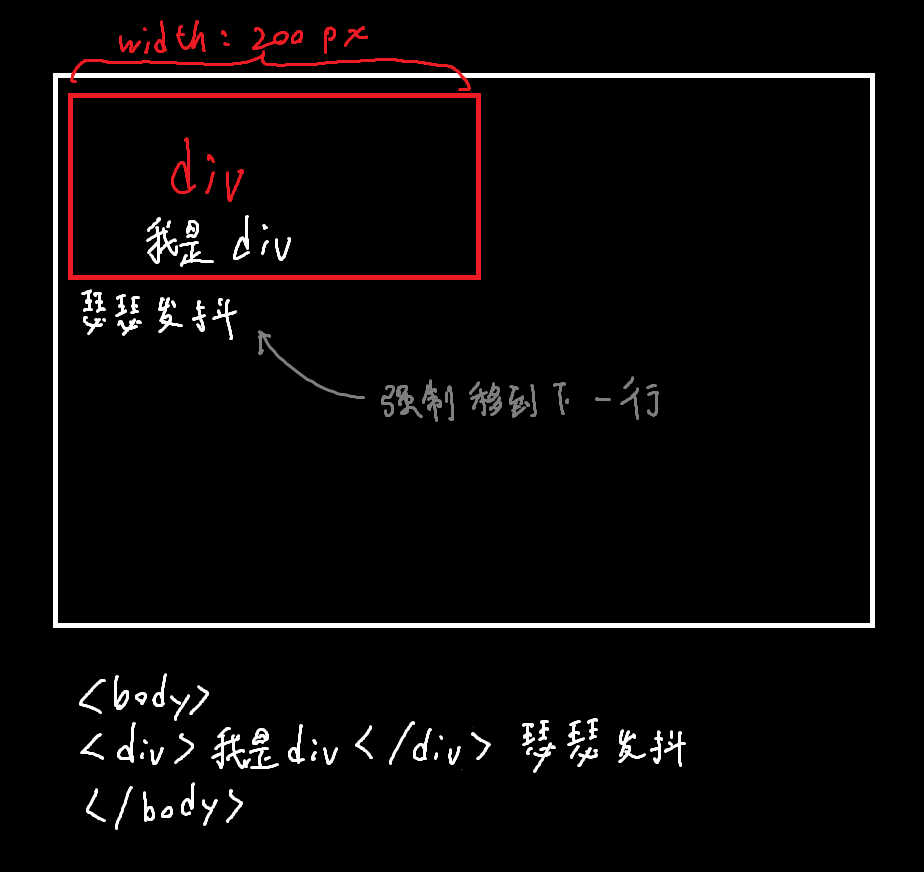 width: 200 px
div
我是 div
瑟瑟发抖
强制移到下一行
<body>
<div>我是div</div> 瑟瑟发抖
</body>